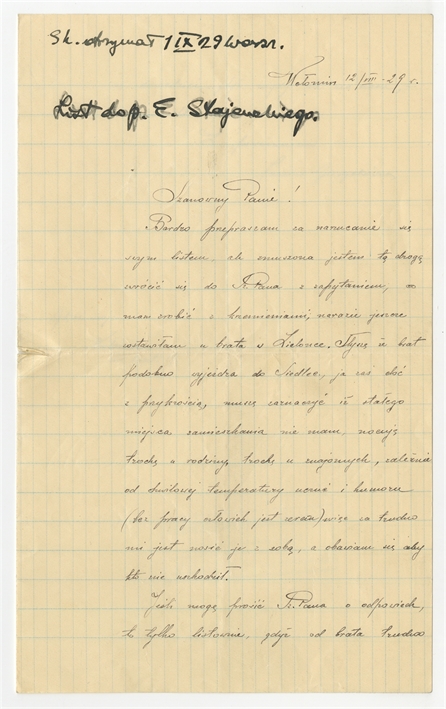 Sk. otrzymał 1 IX 29 warsz.
Wołomin 12/VIII - 29 r.
List do p. E. Stajewskiego.
Szanowny Panie!
Bardzo przepraszam za narzucanie się
swym listem, ale zmuszona jestem tą drogą
zwrócić się do Sz. Pana z zapytaniem, co
mam zrobić z kamieniami, narazie jeszcze
zostawiłam u brata w Zielonce. Słyszę że brat
podobno wyjeżdża do Siedlec, ja zaś choć
z przykrością, muszę zaznaczyć iż stałego
miejsca zamieszkania nie mam, nocuję
trochę u rodziny, trochę u znajomych, zależnie
od chwilowej temperatury uczuć i humoru
(bez pracy człowiek jest zerem) więc za trudno
mi jest nosić je z sobą, a obawiam się aby
kto nie uszkodził.
Jeśli mogę prosić Sz. Pana o odpowiedź,
to tylko listownie, gdyż od brata trudno